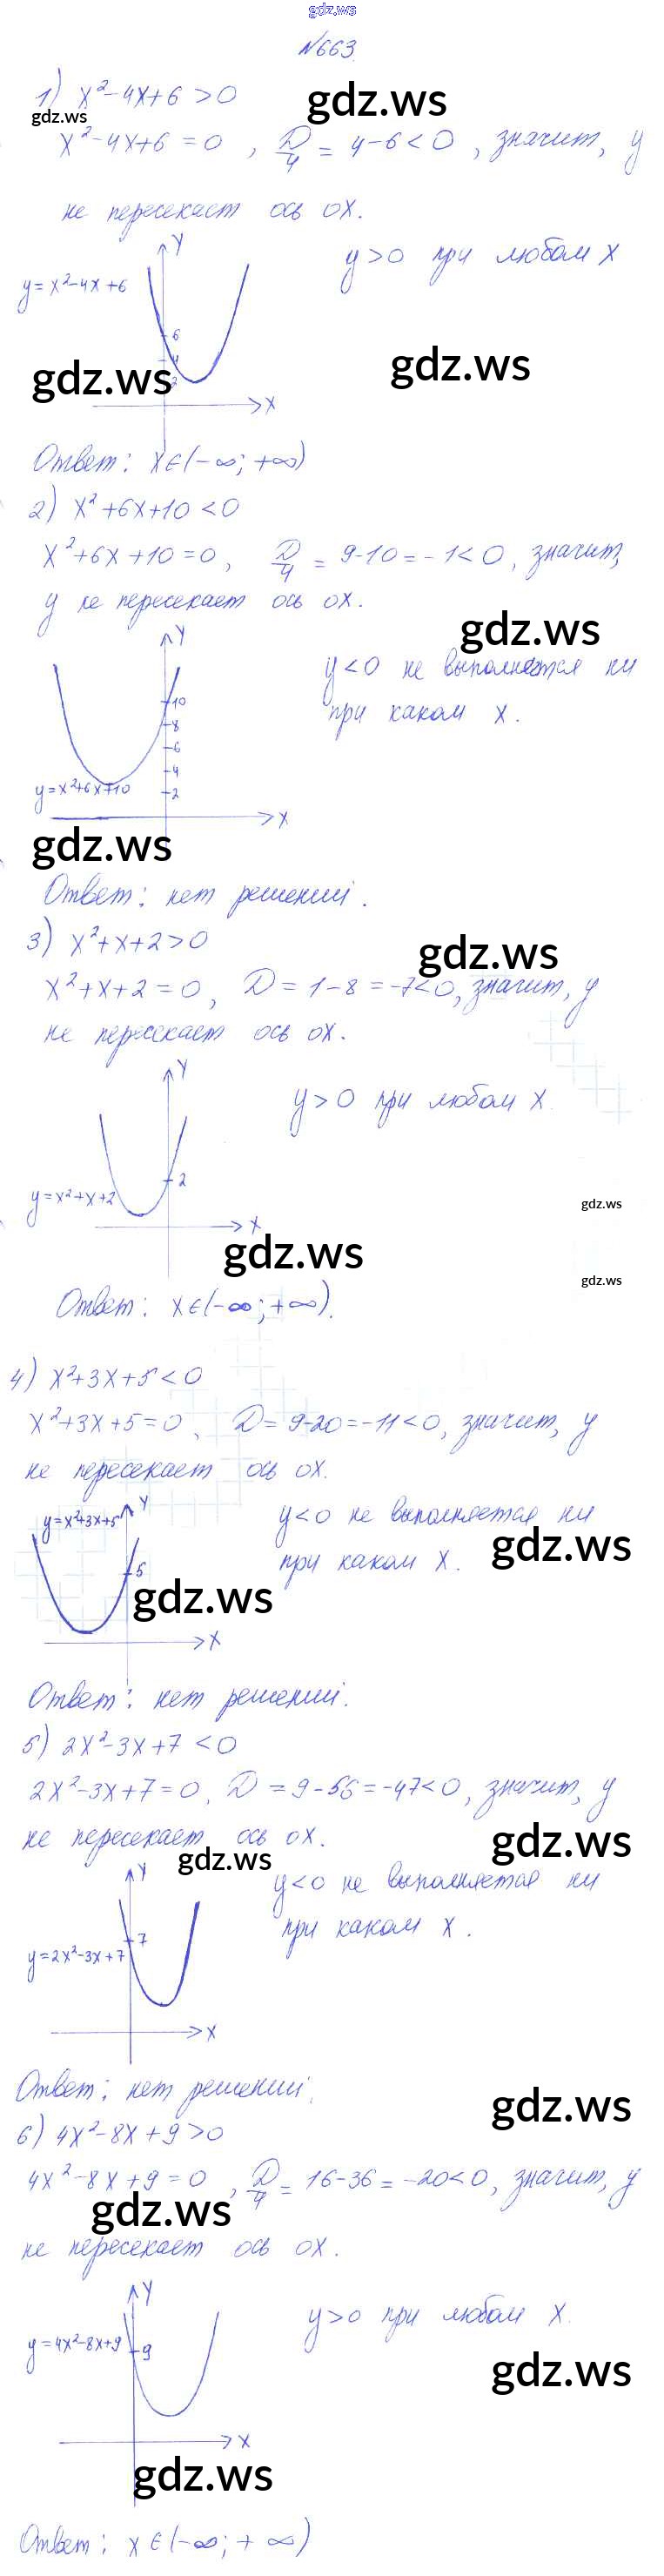 gdz.ws
№663.
1) x²-4x+6>0
gdz.ws
gdz.ws
x²-4x+6=0, D/4 = 4-6<0, значит, y
не пересекает ось OX.
Y
y>0 при любом x
y=x²-4x+6
6
4
2
gdz.ws
gdz.ws
X
Ответ: x∈(-∞; +∞)
2) x²+6x+10<0
x²+6x+10=0, D/4 = 9-10=-1<0, значит,
y не пересекает ось OX.
gdz.ws
Y
y<0 не выполняется ни
при каком x.
10
8
6
4
2
y=x²+6x+10
X
gdz.ws
Ответ: нет решений.
3) x²+x+2>0
gdz.ws
x²+x+2=0, D=1-8=-7<0, значит, y
не пересекает ось OX.
Y
y>0 при любом x.
2
y=x²+x+2
gdz.ws
X
gdz.ws
gdz.ws
Ответ: x∈(-∞; +∞).
4) x²+3x+5<0
x²+3x+5=0, D=9-20=-11<0, значит, y
не пересекает ось OX.
Y
y=x²+3x+5
y<0 не выполняется ни
при каком x.
gdz.ws
5
gdz.ws
X
Ответ: нет решений.
5) 2x²-3x+7<0
2x²-3x+7=0, D=9-56=-47<0, значит, y
не пересекает ось OX.
gdz.ws
gdz.ws
Y
y<0 не выполняется ни
при каком x.
7
y=2x²-3x+7
X
Ответ: нет решений.
gdz.ws
6) 4x²-8x+9>0
4x²-8x+9=0, D/4=16-36=-20<0, значит, y
gdz.ws
не пересекает ось OX.
Y
y>0 при любом x.
y=4x²-8x+9
9
gdz.ws
X
gdz.ws
Ответ: x∈(-∞; +∞)